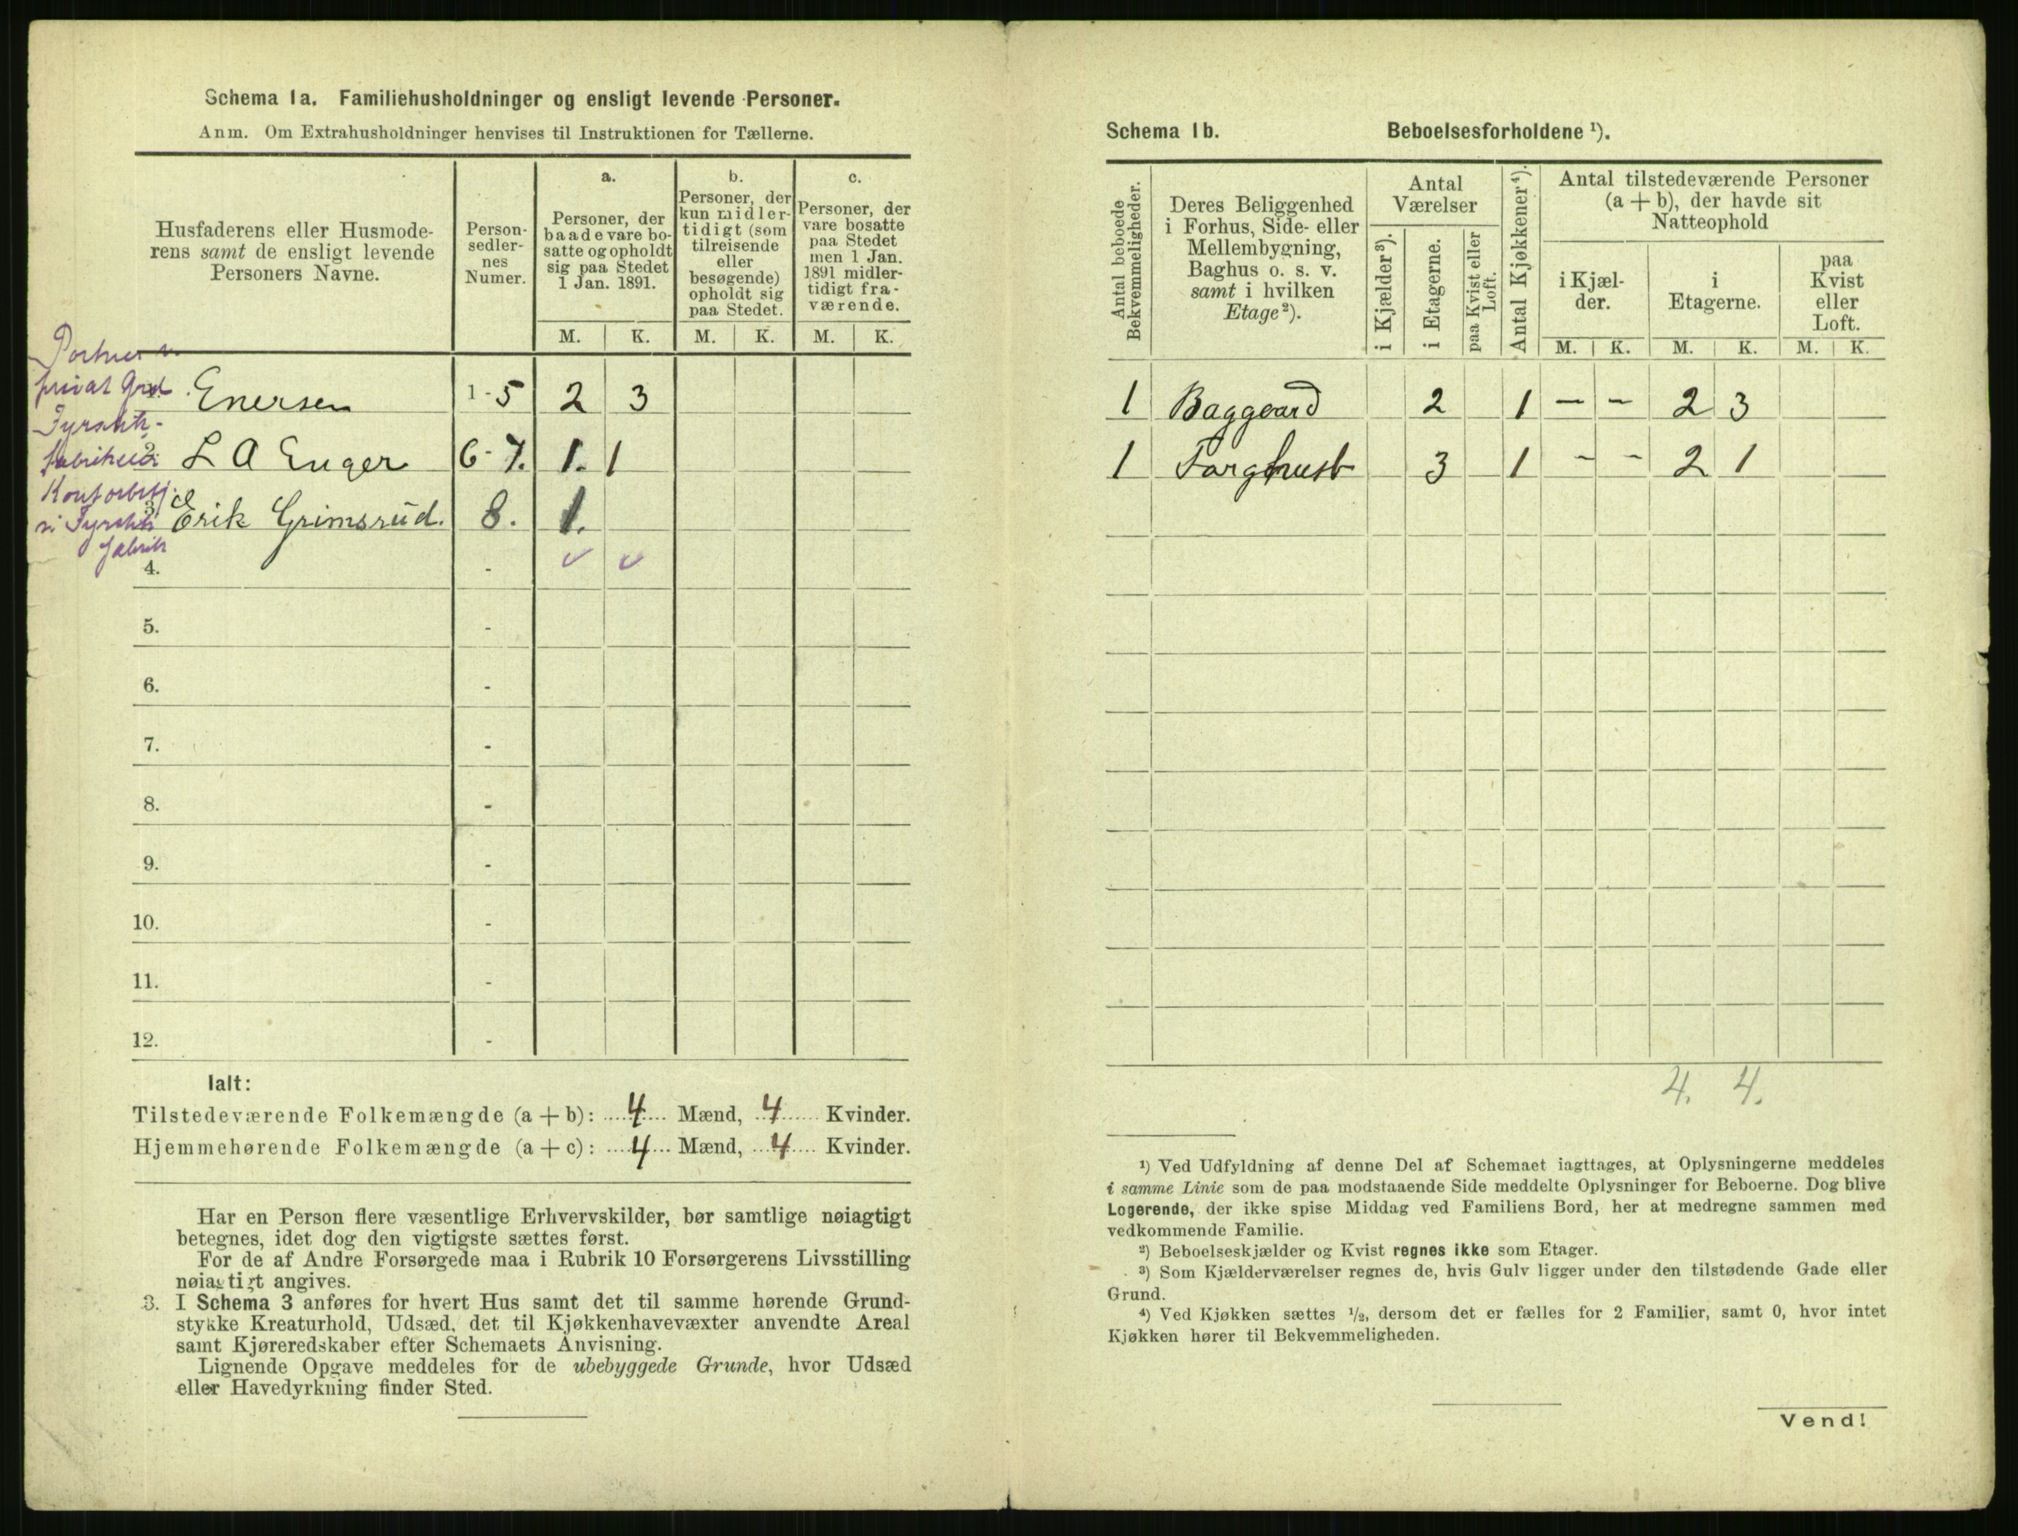 Schema 1a. Familiehusholdninger og ensligt levende Personer.
Anm. Om Extrahusholdninger henvises til Instruktionen for Tællerne.
Husfaderens eller Husmode-
rens samt de ensligt levende
Personers Navne.
Person-
sedler-
nes
Numer.
a.
Personer, der
baade vare bo-
satte og opholdt
sig paa Stedet
1 Jan. 1891.
b.
Personer, der
kun midler-
tidigt (som
tilreisende
eller
besøgende)
opholdt sig
paa Stedet.
c.
Personer, der
vare bosatte
paa Stedet
men 1 Jan.
1891 midler-
tidigt fra-
værende.
M. K. M. K. M. K.
Portner v.
privat Grd. Enersen 1-5 2 3
Fyrstik-
fabrikeier L A Enger 6-7. 1. 1
Kontorbetj.
i Fyrstik 3 Erik Grimsrud. 8. 1.
fabrik
4. -
5. -
6. -
7. -
8. -
9. -
10. -
11. -
12. -
Ialt:
Tilstedeværende Folkemængde (a + b): 4 Mænd, 4 Kvinder.
Hjemmehørende Folkemængde (a + c): 4 Mænd, 4 Kvinder.
Har en Person flere væsentlige Erhvervskilder, bør samtlige nøiagtigt
betegnes, idet dog den vigtigste sættes først.
For de af Andre Forsørgede maa i Rubrik 10 Forsørgerens Livsstilling
nøiagtigt angives.
3. I Schema 3 anføres for hvert Hus samt det til samme hørende Grund-
stykke Kreaturhold, Udsæd, det til Kjøkkenhavevæxter anvendte Areal
samt Kjøreredskaber efter Schemaets Anvisning.
Lignende Opgave meddeles for de ubebyggede Grunde, hvor Udsæd
eller Havedyrkning finder Sted.
Schema 1b. Beboelsesforholdene ¹).
Antal beboede
Bekvemmeligheder.
Deres Beliggenhed
i Forhus, Side- eller
Mellembygning,
Baghus o. s. v.
samt i hvilken
Etage²).
Antal
Værelser
i Kjælder³).
i Etagerne.
paa Kvist eller
Loft.
Antal Kjøkkener⁴).
Antal tilstedeværende Personer
(a + b), der havde sit
Natteophold
i Kjæl-
der.
i
Etagerne.
paa
Kvist
eller
Loft.
M. K. M. K. M. K.
1 Baggaard 2 1 - - 2 3
1 3 1 - - 2 1
4. 4.
¹) Ved Udfyldning af denne Del af Schemaet iagttages, at Oplysningerne meddeles
i samme Linie som de paa modstaaende Side meddelte Oplysninger for Beboerne. Dog blive
Logerende, der ikke spise Middag ved Familiens Bord, her at medregne sammen med
vedkommende Familie.
²) Beboelseskjælder og Kvist regnes ikke som Etager.
³) Som Kjælderværelser regnes de, hvis Gulv ligger under den tilstødende Gade eller
Grund.
⁴) Ved Kjøkken sættes ¹/₂, dersom det er fælles for 2 Familier, samt 0, hvor intet
Kjøkken hører til Bekvemmeligheden.
Vend!